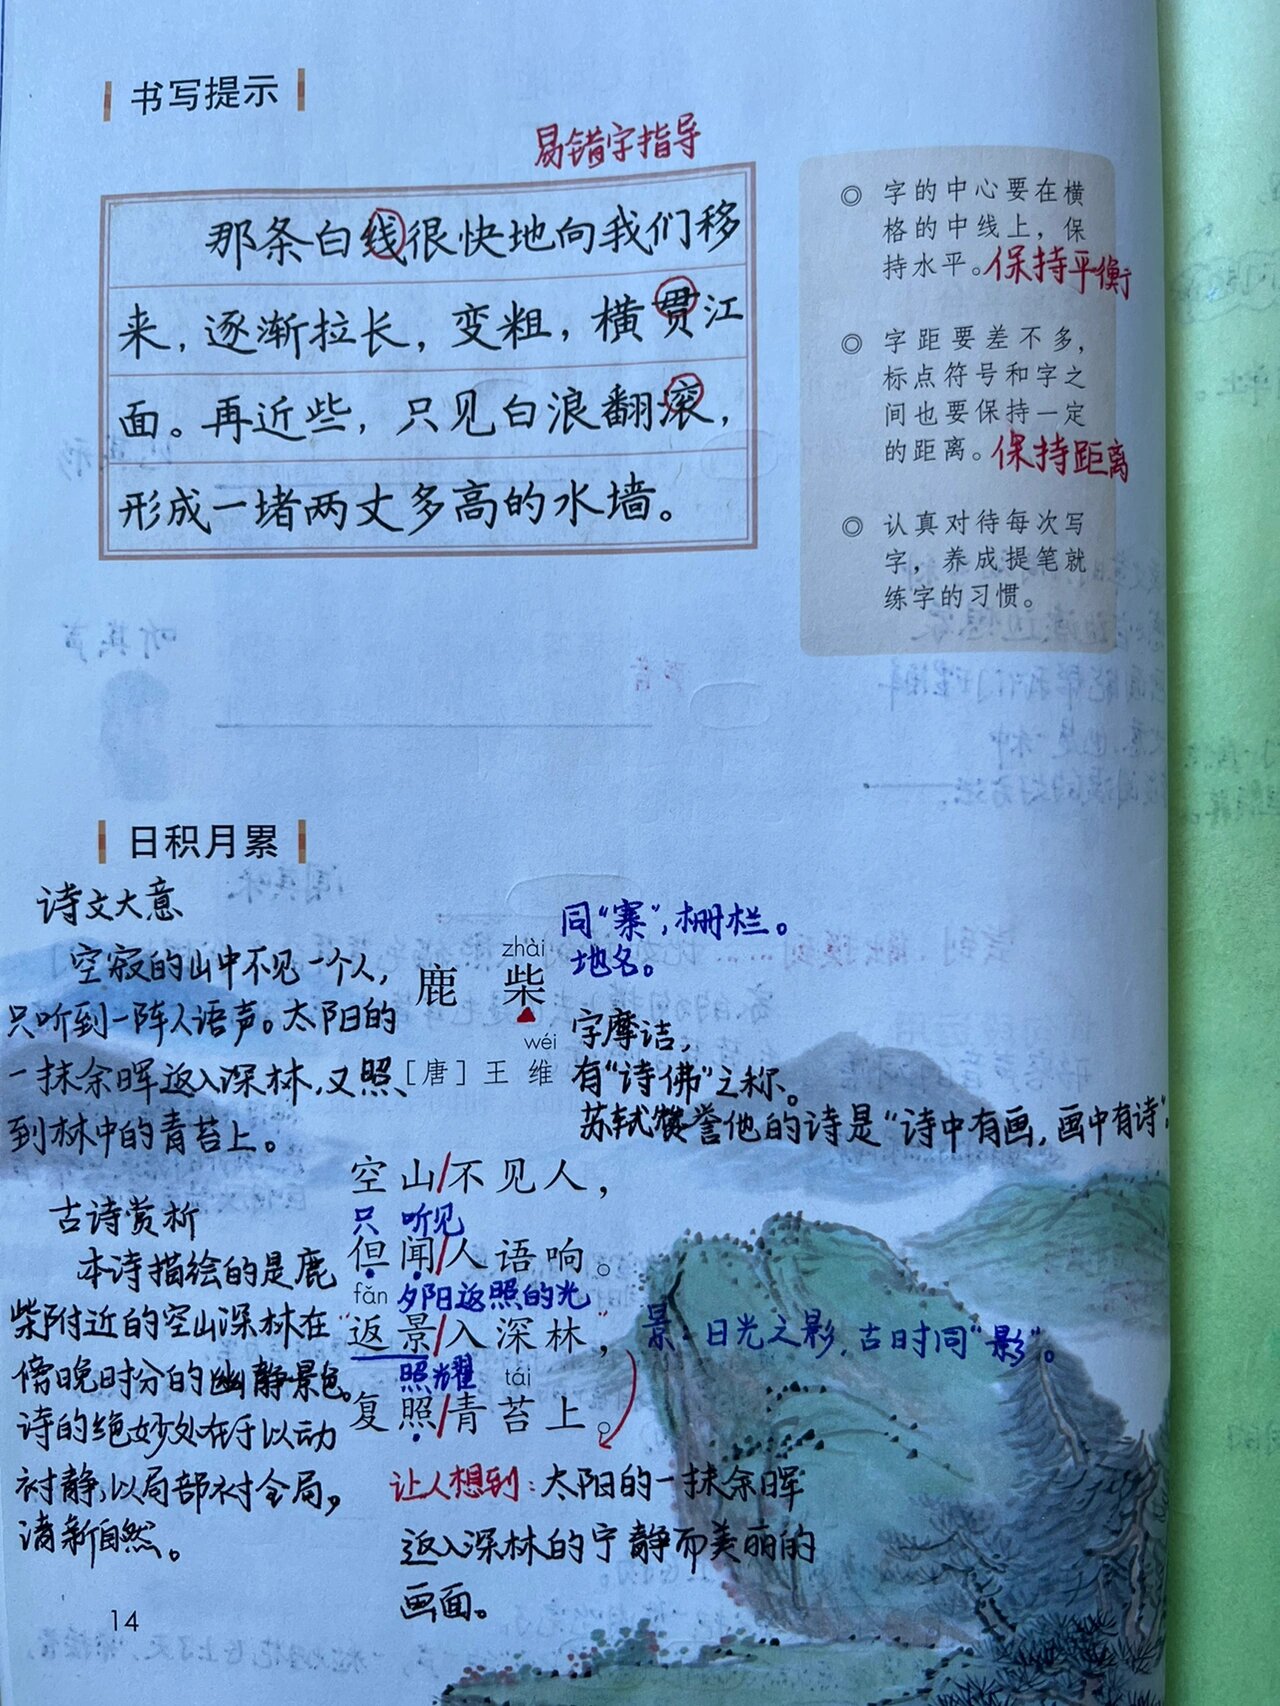 书写提示
易错字指导
那条白线很快地向我们移
来，逐渐拉长，变粗，横贯江
面。再近些，只见白浪翻滚，
形成一堵两丈多高的水墙。
◎ 字的中心要在横
格的中线上，保
持水平。保持平衡
◎ 字距要差不多，
标点符号和字之
间也要保持一定
的距离。保持距离
◎ 认真对待每次写
字，养成提笔就
练字的习惯。
日积月累
诗文大意
空寂的山中不见一个人，
只听到一阵人语声。太阳的
一抹余晖返入深林，又照
到林中的青苔上。
同“寨”，栅栏。
地名。
zhài
鹿柴
wéi
［唐］王维
字摩诘，
有“诗佛”之称。
苏轼赞誉他的诗是“诗中有画，画中有诗”。
空山/不见人，
只 听见
但闻/人语响。
fǎn 夕阳返照的光
返景/入深林，
景－日光之影，古时同“影”。
照耀 tái
复照/青苔上。
古诗赏析
本诗描绘的是鹿
柴附近的空山深林在
傍晚时分的幽静景色。
诗的绝妙处在于以动
衬静，以局部衬全局，
清新自然。
让人想到：太阳的一抹余晖
返入深林的宁静而美丽的
画面。
14